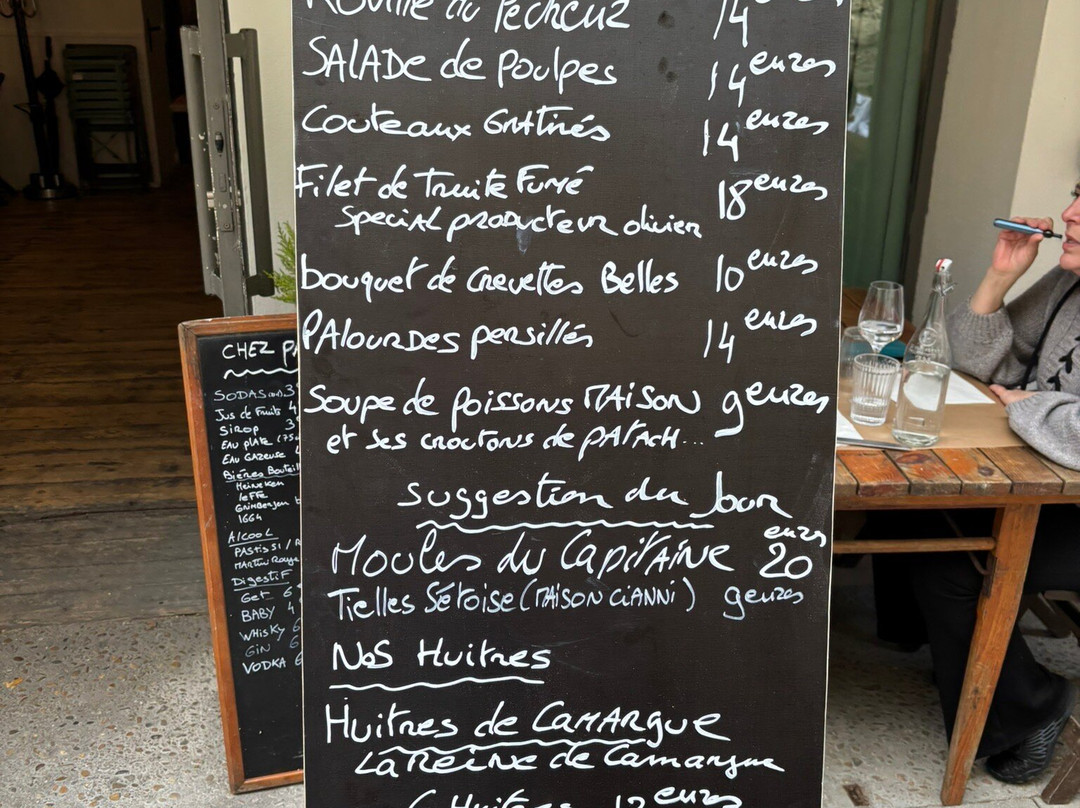 Rouille du Pecheur 14 euros
SALADE de Poulpes 14 euros
Couteaux GRATinés 14 euros
Filet de Truite Fumé 18 euros
Special producteur olivier
bouquet de crevettes Belles 10 euros
PALourDes persillés 14 euros
Soupe de poissons MAiSON 9 euros
et ses croutons de PATACH...
Suggestion du Jour
Moules du CapiTAiNe 20 euros
Tielles Sétoise (MAiSON CiANNi) 9 euros
NOS Huitres
Huitres de CAMARgue
La Reine de Camargue
6 Huitres 12 euros
CHEZ PA
SODAS 3
Jus de Fruits 4
SiROP 3
EAu plATE (75
EAu GAZeuse
Bières Bouteil
Heineken
leFFe
GRiMBergen
1664
Alcool
PASTiS 51 / R
MARTini Rouge
DigestiF
GeT 6
BABY 4
WHisky 6
GiN 6
VODKA 6